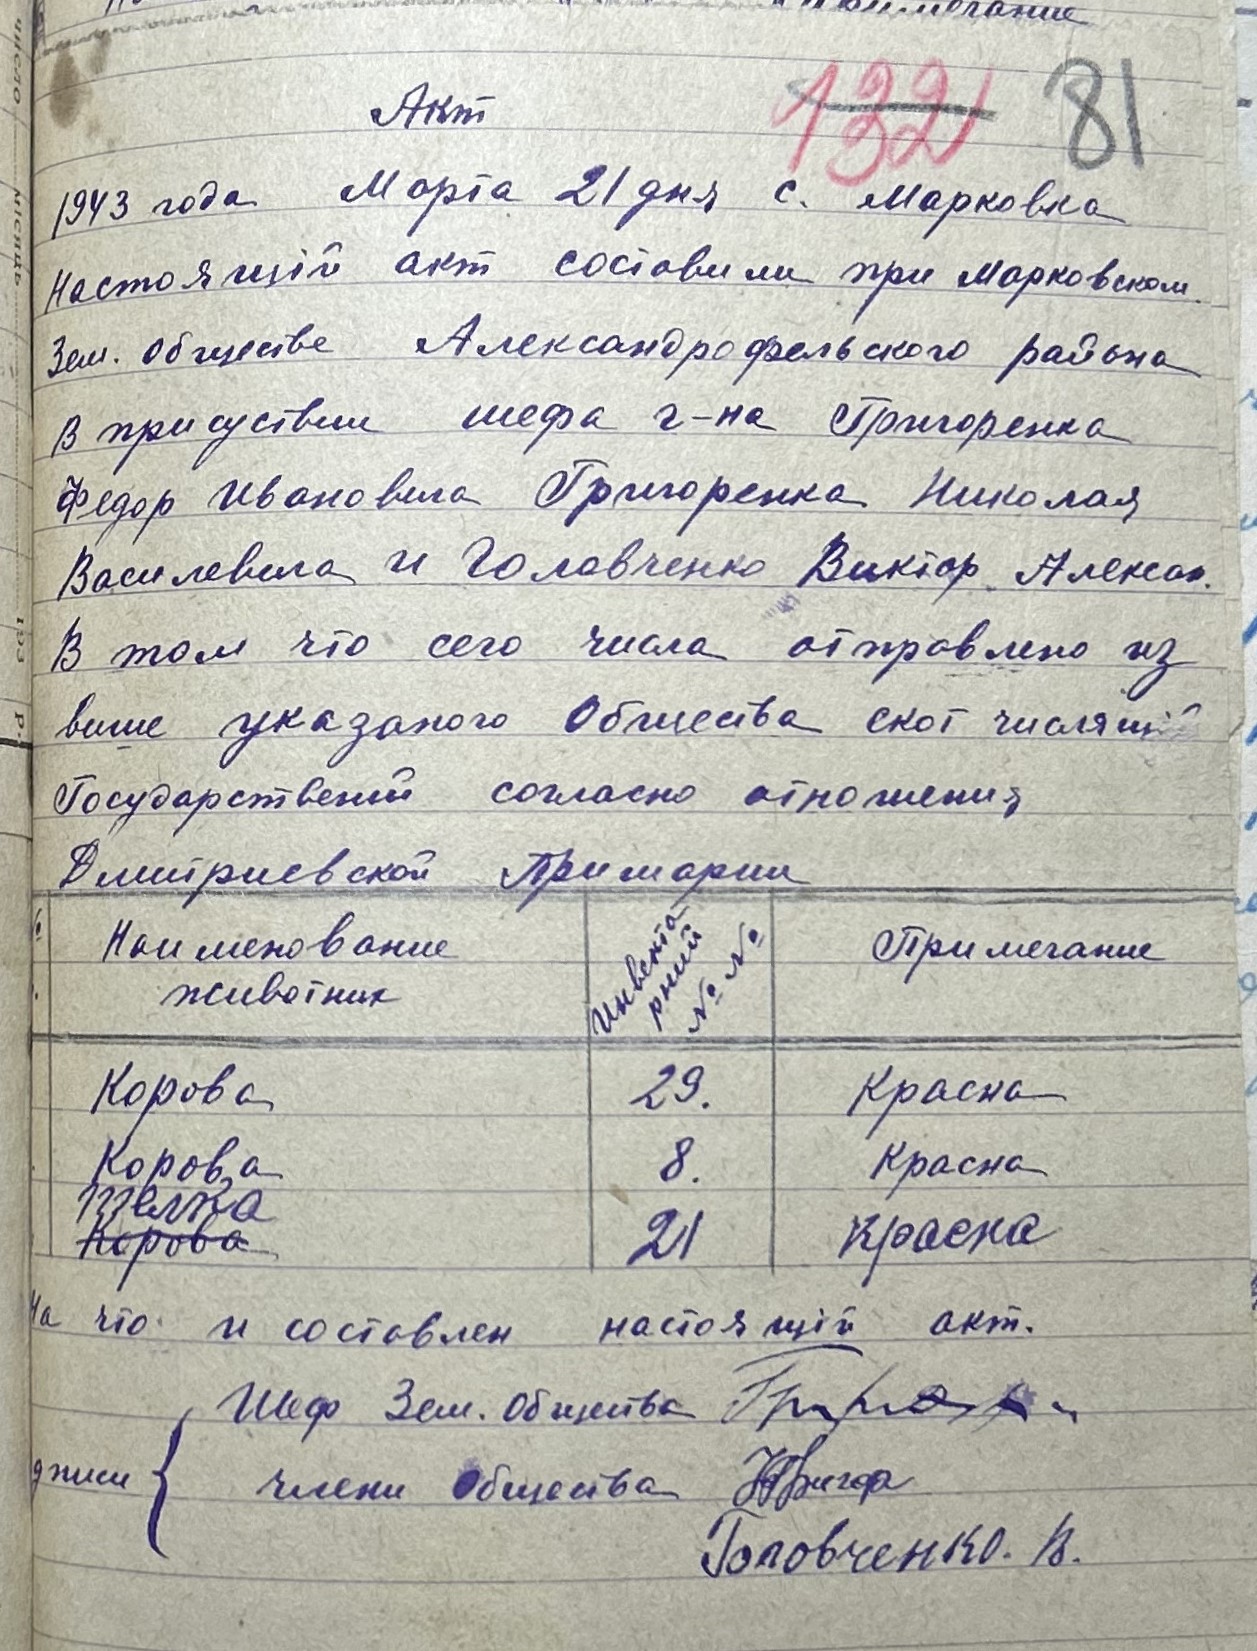 Примечание
132 81
Акт
1943 года Марта 21 дня с. Марковка
Настоящій акт составили при Марковском
Зем. обществе Александрофельского района
В присуствии шефа г-на Григоренка
Федор Ивановича Григоренка Николая
Василевича и Головченко Виктор Алексан.
В том что сего числа отправлено из
више указаного Общества скот числящій
Государственій согласно отношения
Дмитриевской Примарии
Наименование животних Инвентарний №№ Примечание
Корова 29. Красна
Корова 8. Красна
Телка
Корова 21 Красна
На что и составлен настоящій акт.
Шеф Зем. Общества
члени Общества
Головченко. В.